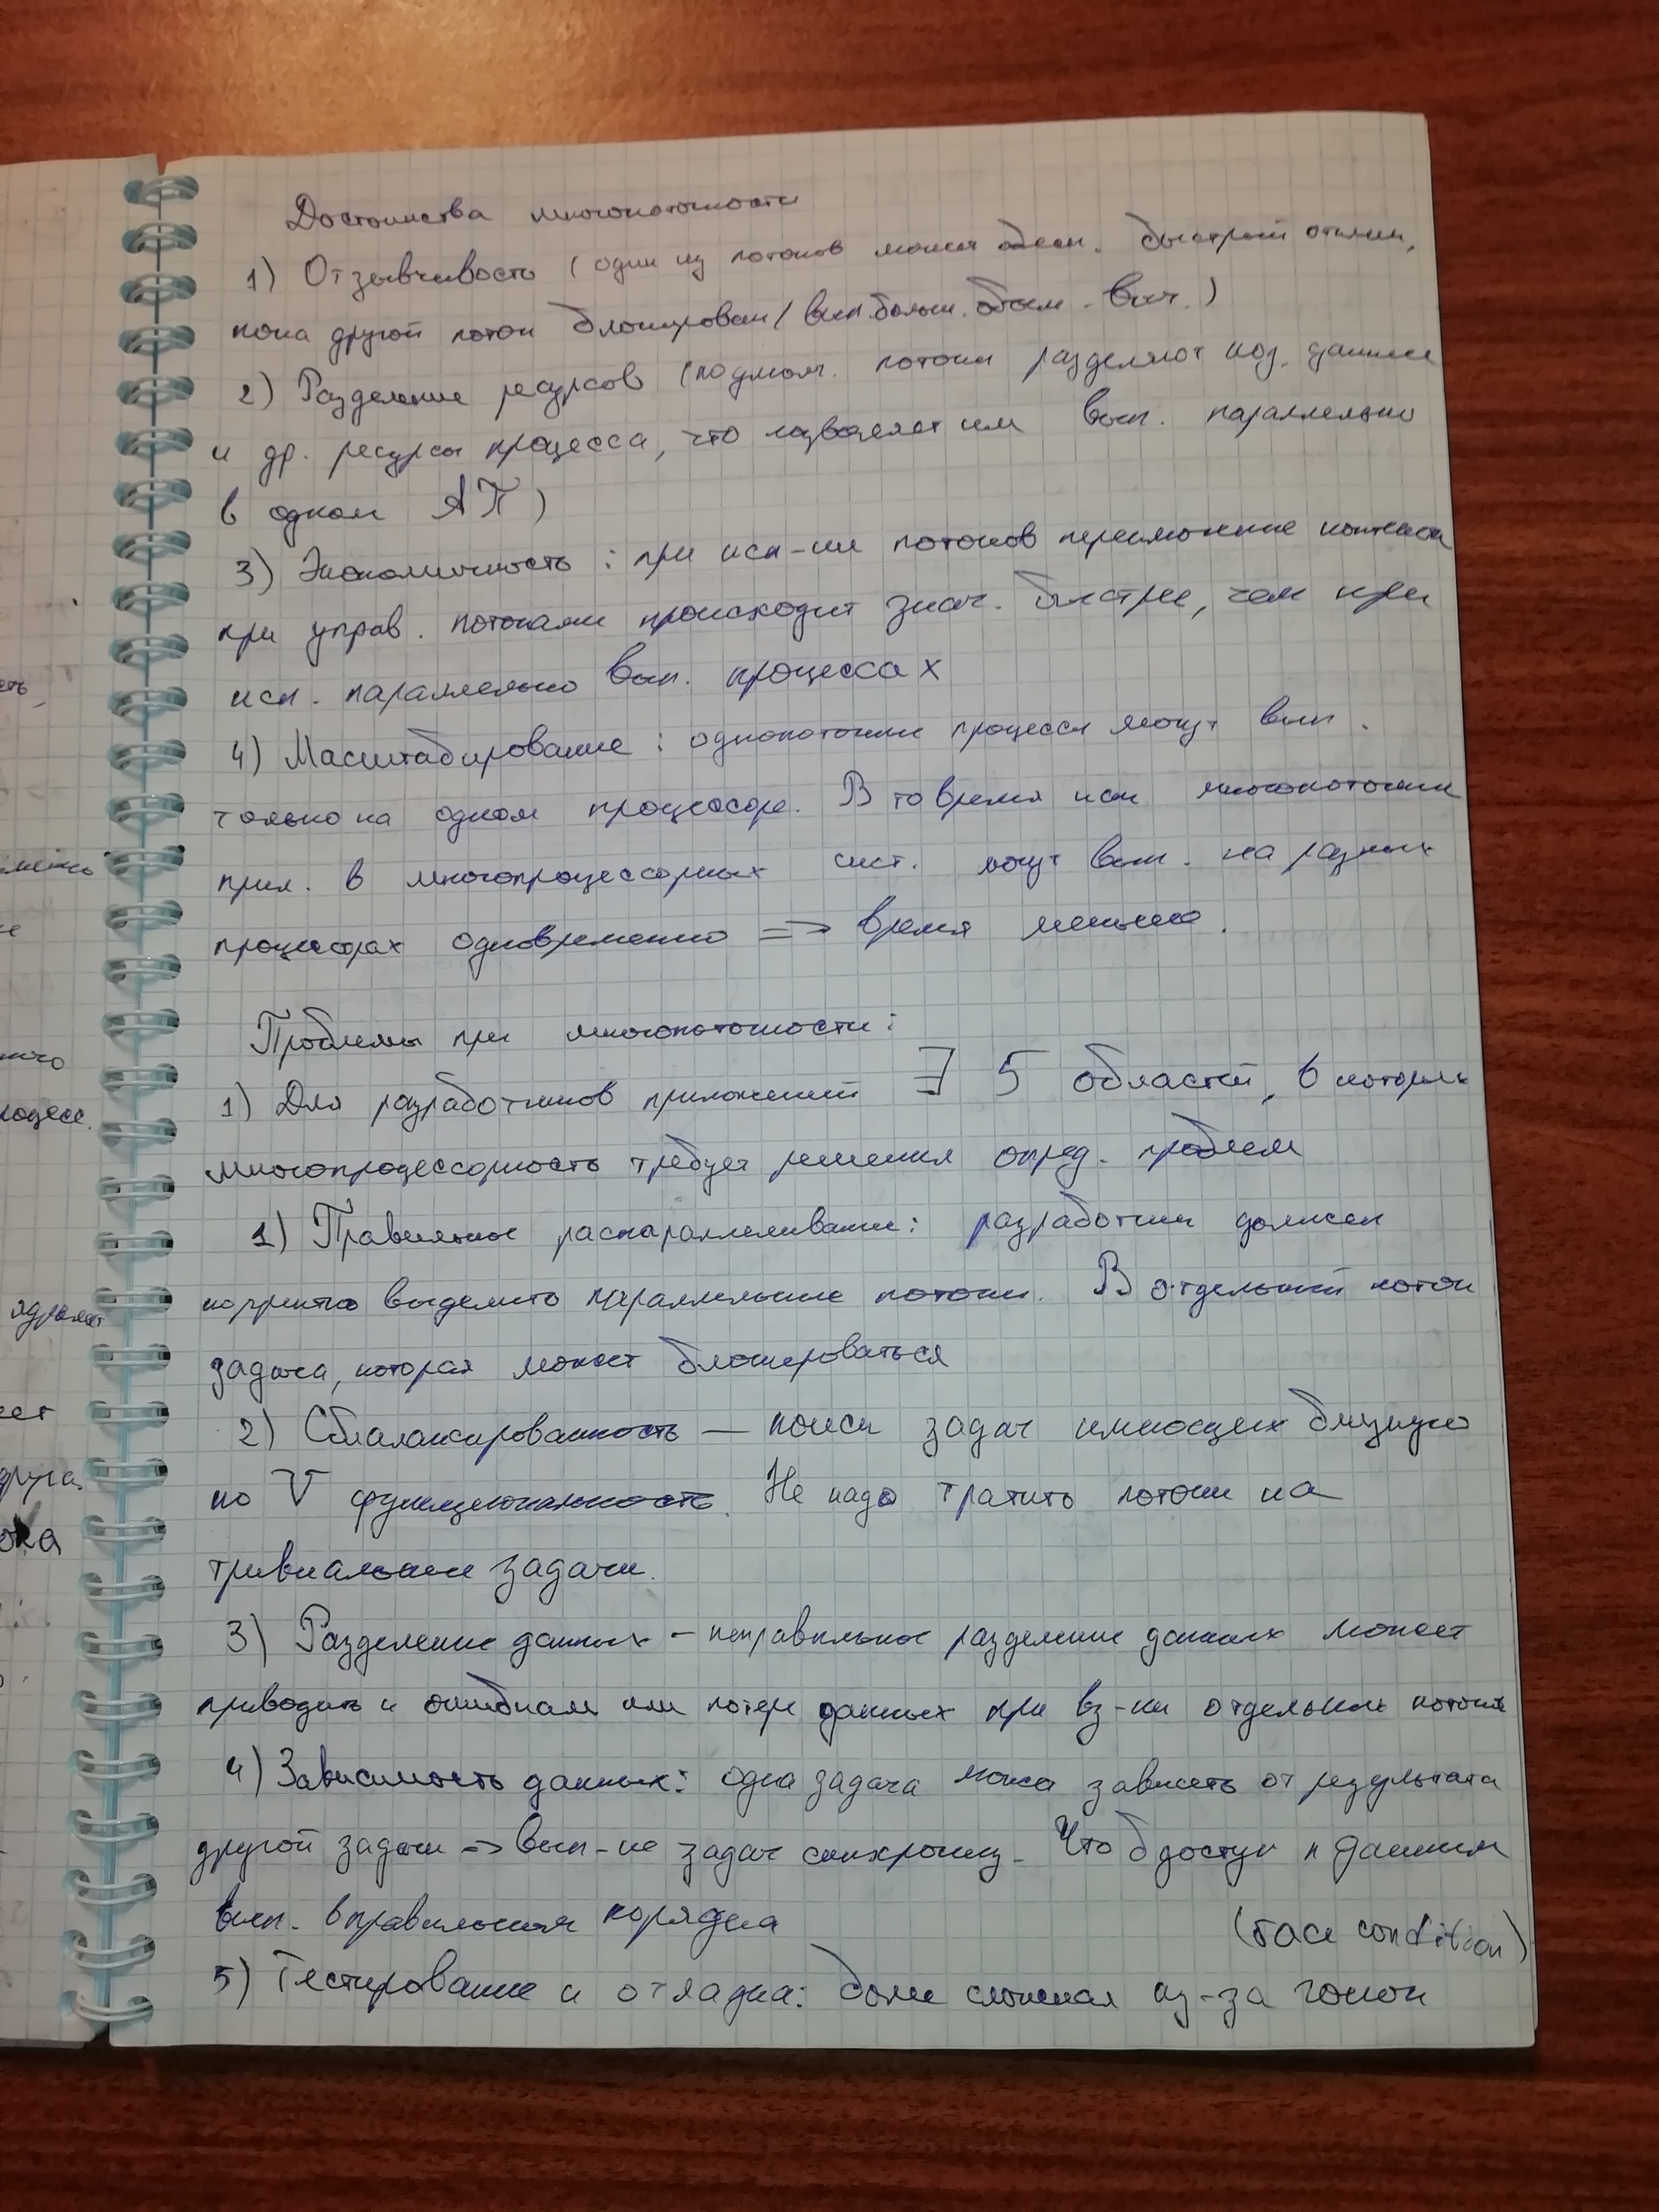 Достоинства многопоточности
1) Отзывчивость (один из потоков может обесп. быстрый отклик,
пока другой поток блокирован / вып. больш. объем. выч.)
2) Разделение ресурсов (по умолч. потоки разделяют код, данные
и др. ресурсы процесса, что позволяет им вып. параллельно
в одном АП)
3) Экономичность: при исп-ии потоков переключение контекста
при управ. потоками происходит знач. быстрее, чем при
исп. параллельно вып. процессах
4) Масштабирование: однопоточные процессы могут вып.
только на одном процессоре. В то время как многопоточные
прил. в многопроцессорных сист. могут вып. на разных
процессорах одновременно => время меньше.
Проблемы при многопоточности:
1) Для разработчиков приложений ∃ 5 областей, в которых
многопроцессорность требует решения опред. проблем
1) Правильное распараллеливание: разработчик должен
корректно выделить параллельные потоки. В отдельный поток
задача, которая может блокироваться
2) Сбалансированность — поиск задач имеющих близкую
по V функциональность. Не надо тратить потоки на
тривиальные задачи.
3) Разделение данных - неправильное разделение данных может
приводить к ошибкам или потере данных при вз-ии отдельных потоков
4) Зависимость данных: одна задача может зависеть от результата
другой задачи => вып-ие задач синхрониз. Что б доступ к данным
вып. в правильном порядке
(race condition)
5) Тестирование и отладка: более сложная из-за гонок